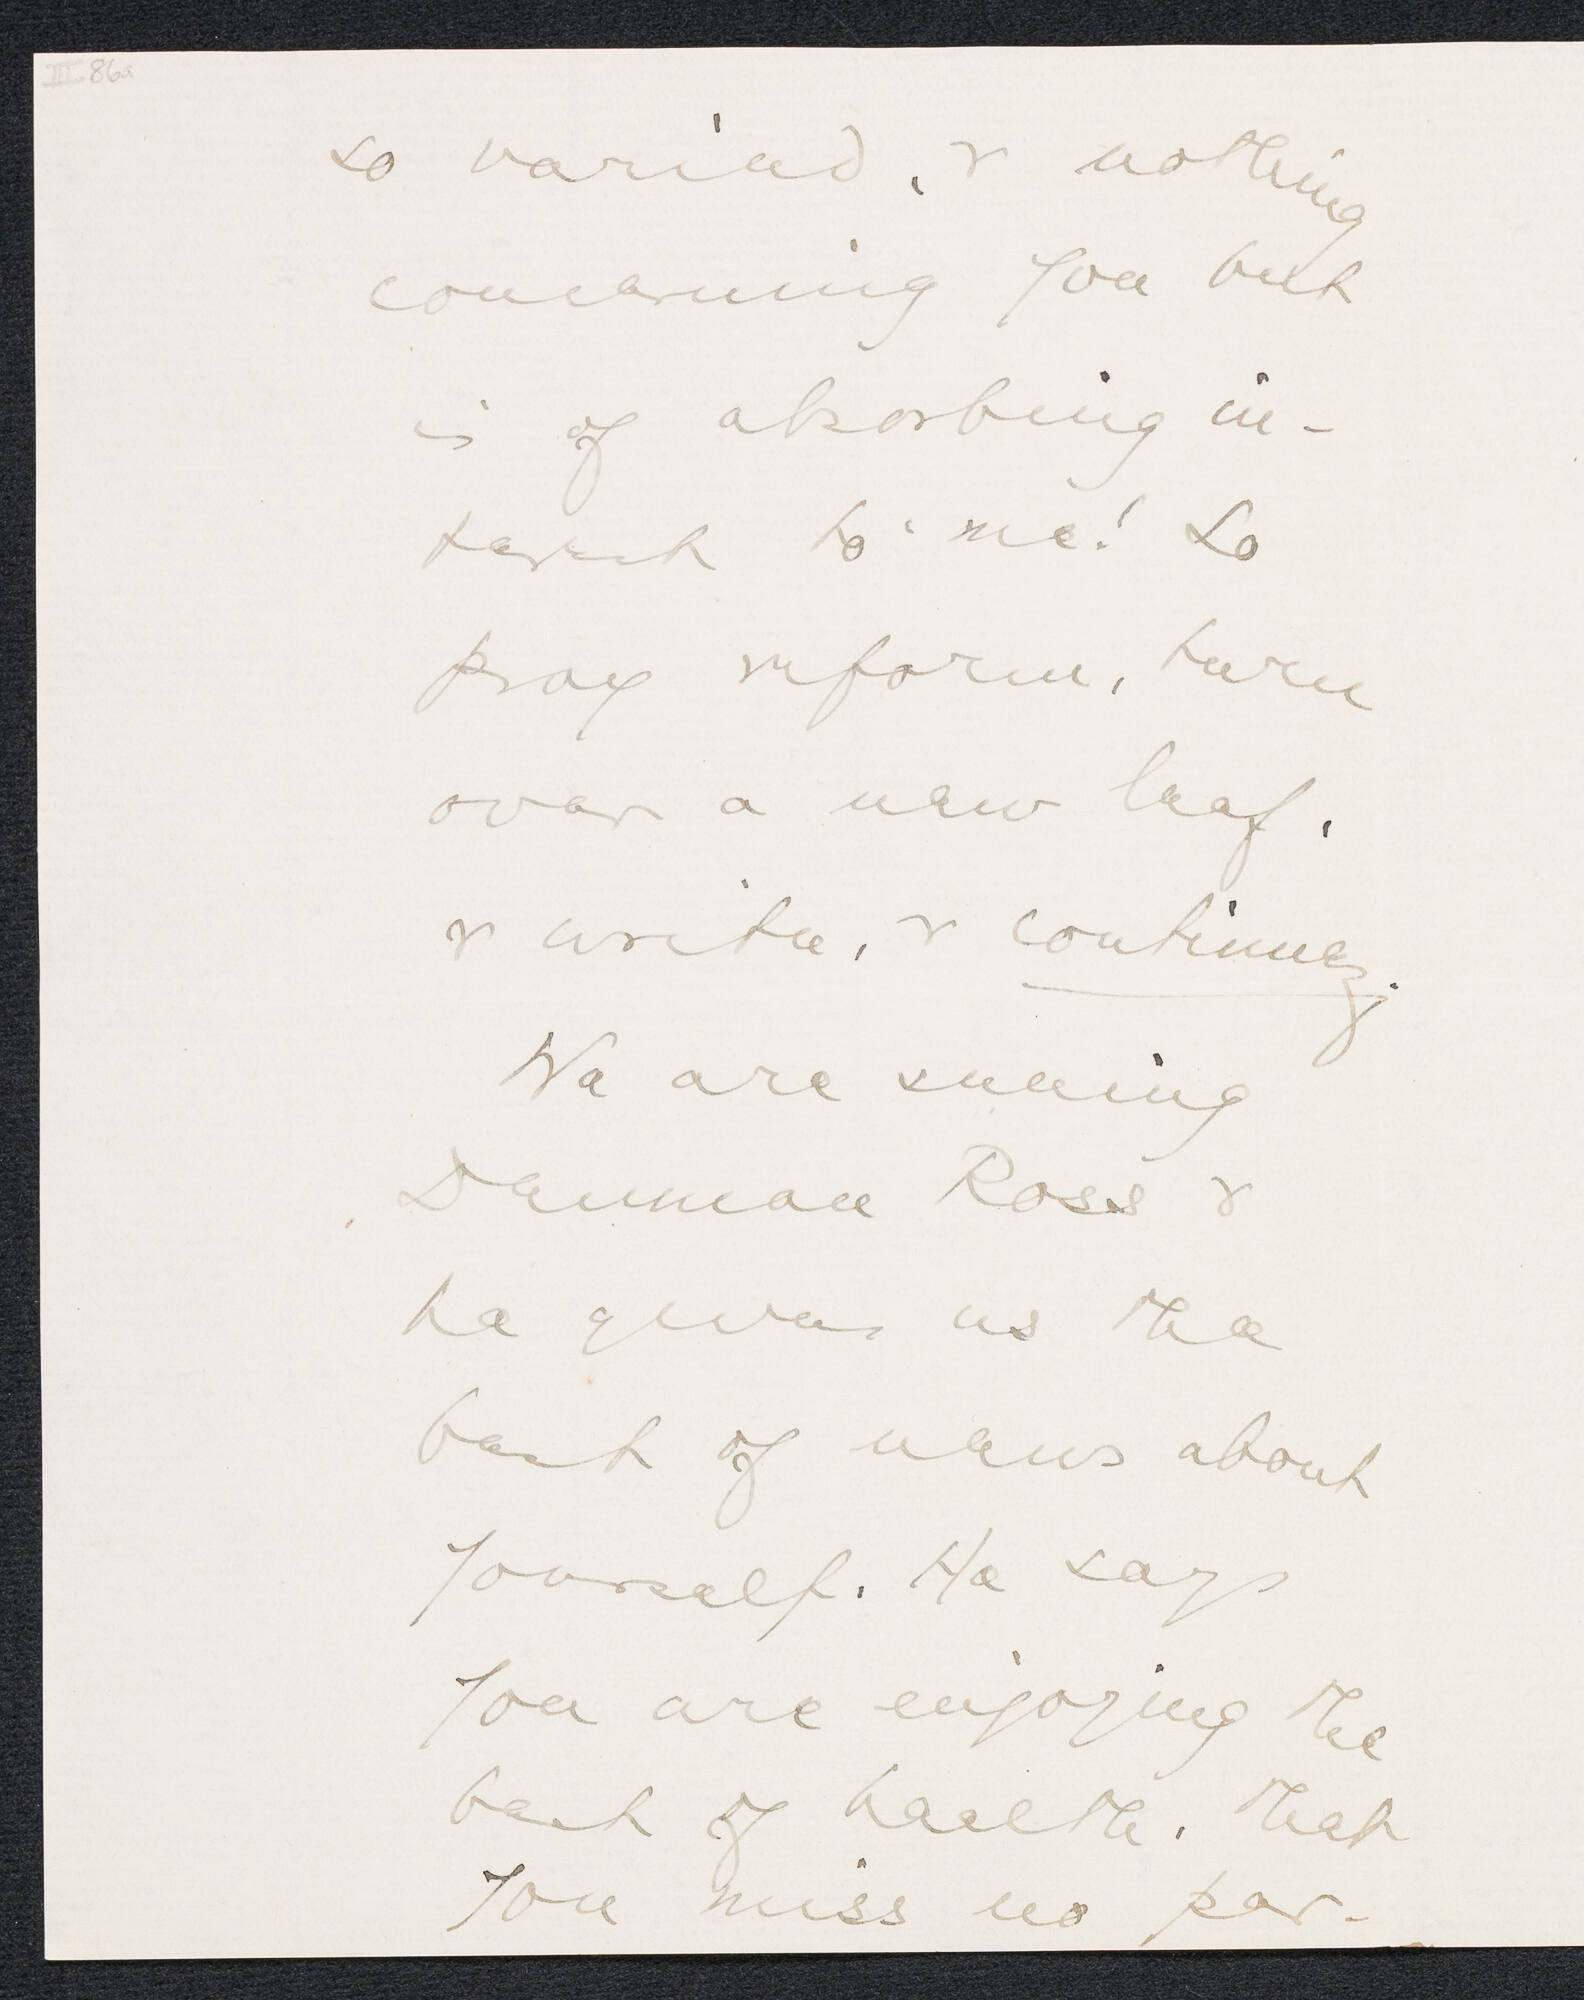 III 86a
so varied, & nothing
concerning you but
is of absorbing in-
terest to me! So
pray reform, turn
over a new leaf,
& write, & continuez.
We are seeing
Denman Ross &
he gives us the
best of news about
yourself. He says
you are enjoying the
best of health, that
you miss no per-